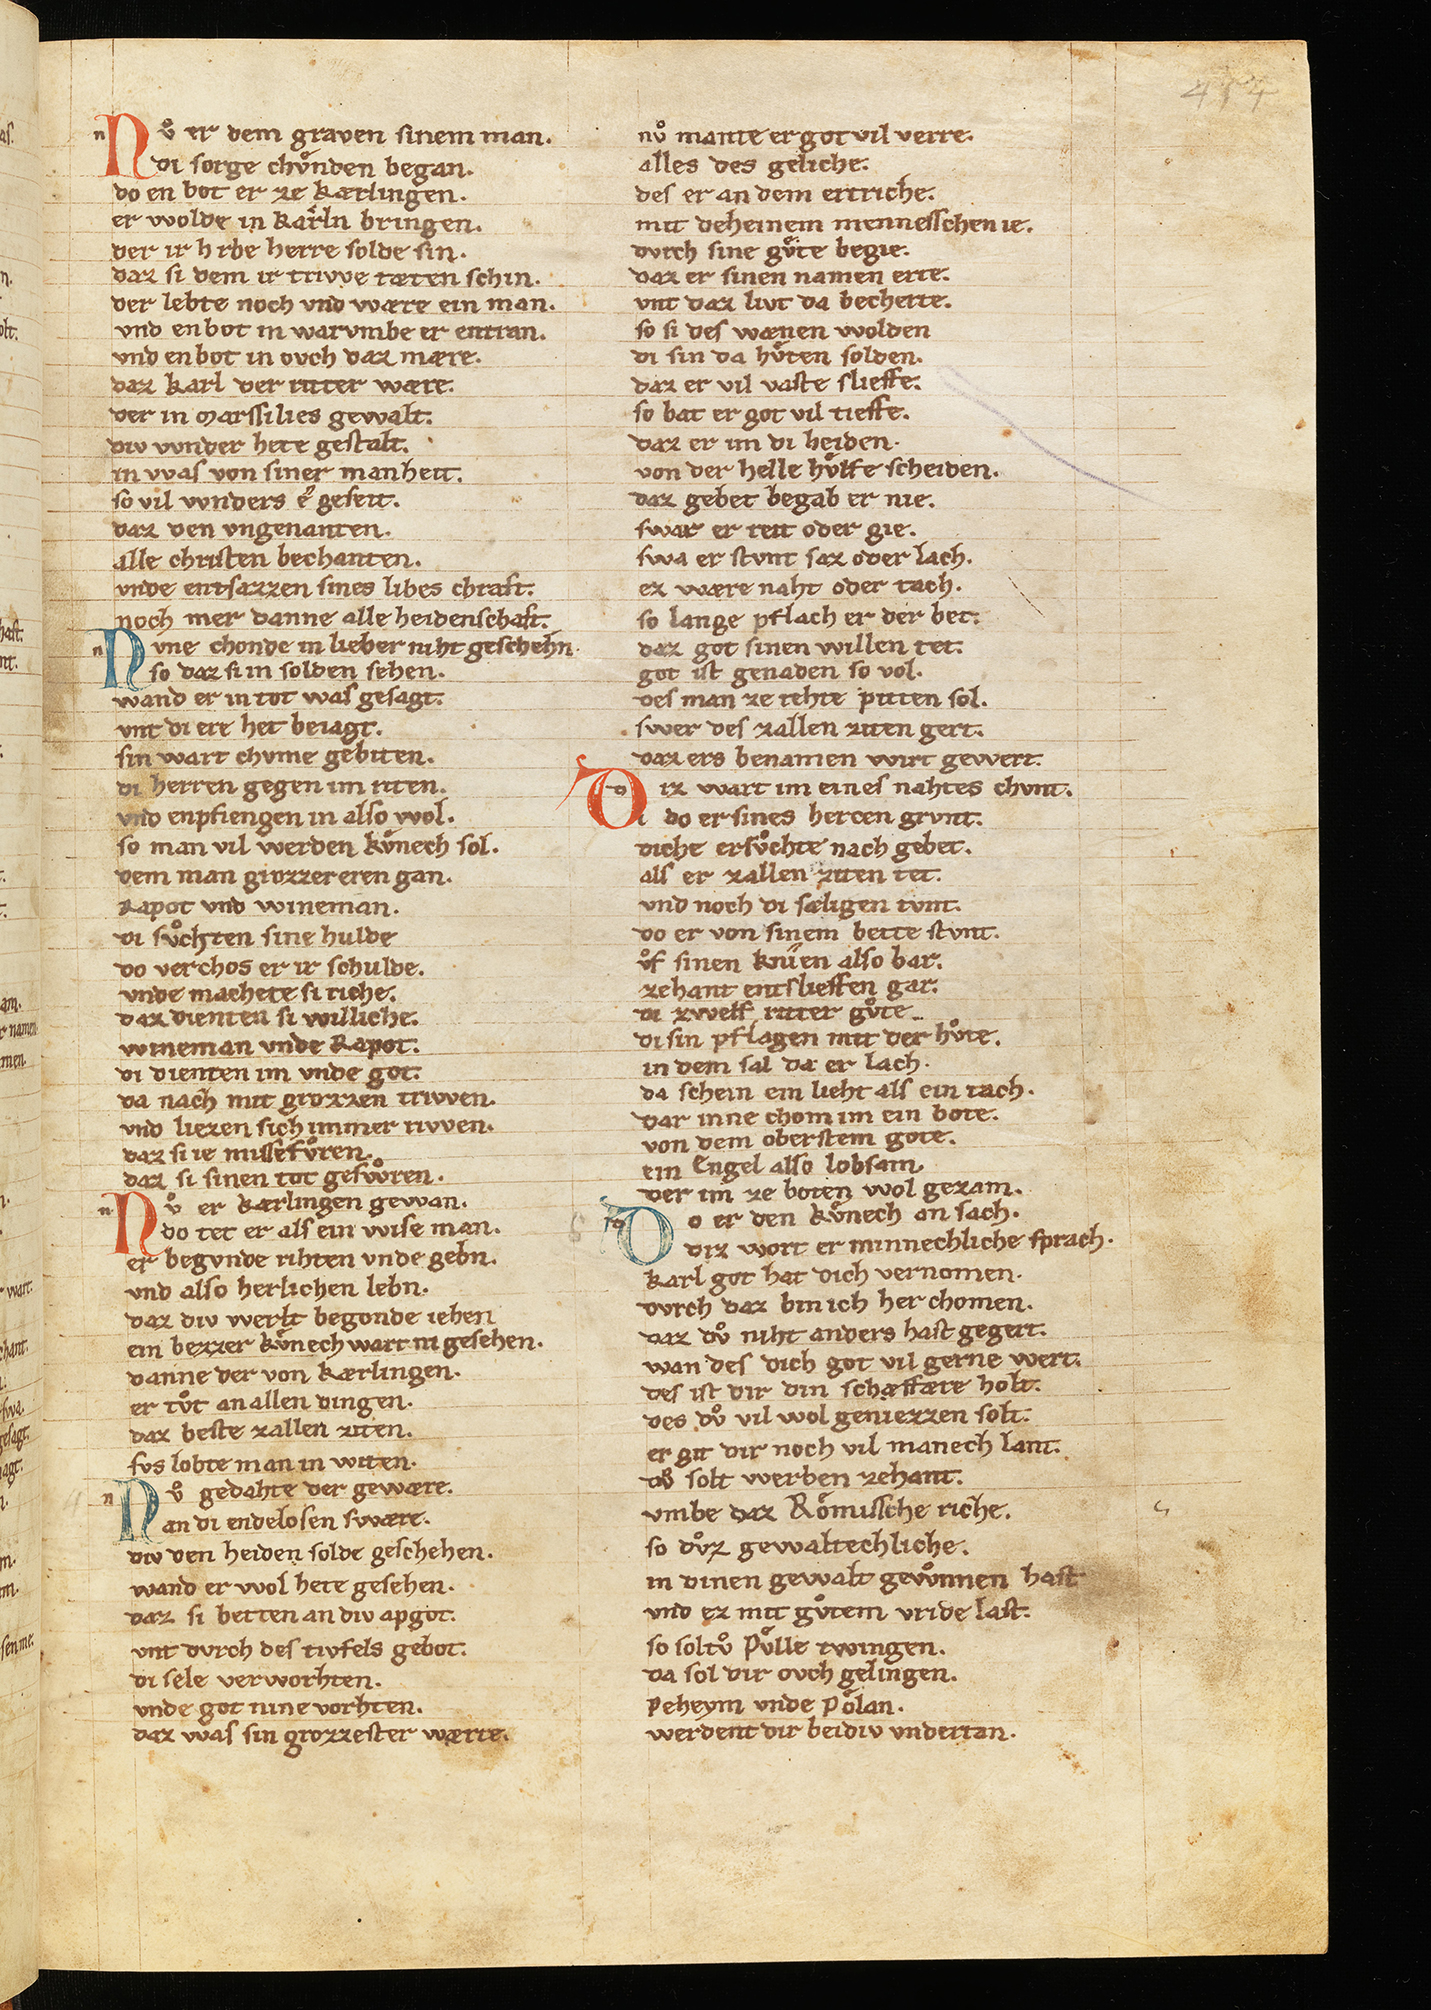 454
Nv̊ er dem graven sinem man.
di sorge chv̊nden began.
do en bot er ze kærlingen.
er wolde in kærln bringen.
der ir h rbe herre solde sin.
daz si dem ir trivve tæten schin.
der lebte noch vnd wære ein man.
vnd enbot in warvmbe er entran.
vnd enbot in ovch daz mære.
daz karl der ritter wære.
der in Marssilies gewalt.
div wnder hete gestalt.
in was von siner manheit.
so vil wnders e geseit.
daz den vngenanten.
alle christen bechanten.
vnde entsazzen sines libes chraft.
noch mer danne alle heidenschaft.
Nvne chonde in lieber niht geschehn.
so daz si in solden sehen.
wand er in tot was gesagt.
vnt di ere het beiagt.
sin wart chvme gebiten.
di herren gegen im riten.
vnd enpfiengen in also wol.
so man vil werden kv̊nech sol.
dem man grozzer eren gan.
Rapot vnd wineman.
di sv̊chten sine hulde
do verchos er ir schulde.
vnde machete si riche.
daz dienten si williche.
wineman vnde Rapot.
di dienten im vnde got.
da nach mit grozzen trivven.
vnd liezen sich immer rivven.
daz si ie missefv̊ren.
daz si sinen tot geswv̊ren.
Nv̊ er kærlingen gewan.
do tet er als ein wise man.
er begvnde rihten vnde gebn.
vnd also herlichen lebn.
daz div werlt begonde iehen
ein bezzer kv̊nech wart ni gesehen.
danne der von kærlingen.
er tv̊t an allen dingen.
daz beste zallen ziten.
svs lobte man in witen.
Nv̊ gedahte der gewære.
an di endelosen swære.
div den heiden solde geschehen.
wand er wol hete gesehen.
daz si betten an div apgot.
vnt dvrch des tivfels gebot.
di sele verworhten.
vnde got nine vorhten.
daz was sin grozzester wærre.
nv̊ mante er got vil verre.
alles des geliche.
des er an dem ertriche.
mit deheinem mennesschen ie.
dvrch sine gv̊te begie.
daz er sinen namen erte.
vnt daz livt da becherte.
so si des wænen wolden
di sin da hv̊ten solden.
daz er vil vaste slieffe.
so bat er got vil tieffe.
daz er im di heiden.
von der helle hv̊lfe scheiden.
daz gebet begab er nie.
swar er reit oder gie.
swa er stvnt saz oder lach.
ez wære naht oder tach.
so lange pflach er der bet.
daz got sinen willen tet.
got ist genaden so vol.
des man ze rehte pitten sol.
swer des zallen ziten gert.
daz ers benamen wirt gewert.
Diz wart im eines nahtes chvnt.
do er sines hercen grvnt.
diche ersv̊chte nach gebet.
als er zallen ziten tet.
vnd noch di sæligen tvnt.
do er von sinem bette stvnt.
v̊f sinen knien also bar.
zehant entslieffen gar.
di zwelf ritter gv̊te
di sin pflagen mit der hv̊te.
in dem sal da er lach.
da schein ein lieht als ein tach.
dar inne chom im ein bote.
von dem oberstem gote.
ein Engel also lobsam.
der im ze boten wol gezam.
Do er den kv̊nech an sach.
diz wort er minnechliche sprach.
karl got hat dich vernomen.
dvrch daz bin ich her chomen.
daz dv̊ niht anders hast gegert.
wan des dich got vil gerne wert.
des ist dir din schæffære holt.
des dv̊ vil wol geniezzen solt.
er git dir noch vil manech lant.
dv̊ solt werben zehant.
vmbe daz Rômissche riche.
so dv̊z gewaltechliche.
in dinen gewalt gewv̊nnen hast
vnd ez mit gv̊tem vride last.
so soltv̊ Pv̊lle twingen.
da sol dir ovch gelingen.
Peheym vnde Pôlan.
werdent dir beidiv vndertan.